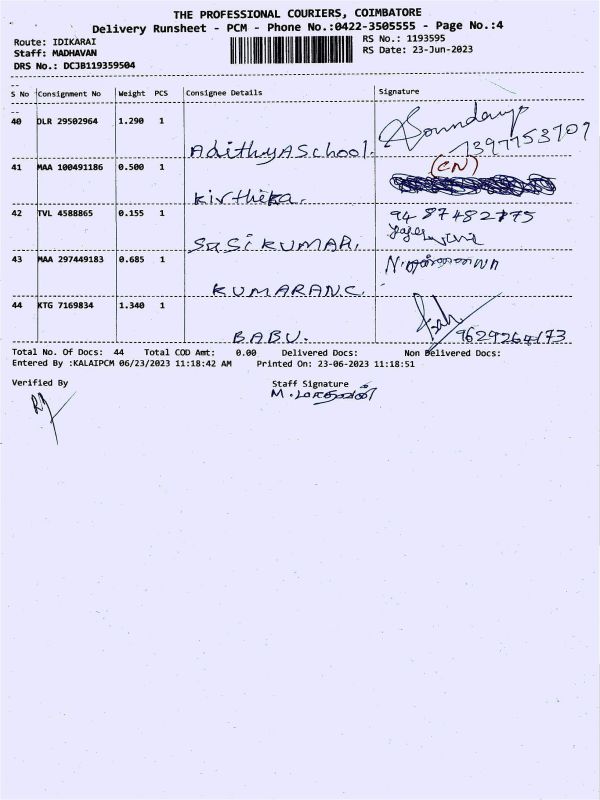 THE PROFESSIONAL COURIERS, COIMBATORE
Delivery Runsheet - PCM - Phone No.:0422-3505555 - Page No.:4
Route: IDIKARAI
RS No.: 1193595
Staff: MADHAVAN
RS Date: 23-Jun-2023
DRS No.: DCJB119359504
S No Consignment No Weight PCS Consignee Details Signature
40 DLR 29502964 1.290 1
Adithya School.
41 MAA 100491186 0.500 1 (CN)
Kirthika.
42 TVL 4588865 0.155 1 9487482775
SASIKUMAR.
43 MAA 297449183 0.685 1
KUMARAN.C.
44 KTG 7169834 1.340 1
BABU. 9629264173
Total No. Of Docs: 44 Total COD Amt: 0.00 Delivered Docs: Non Delivered Docs:
Entered By :KALAIPCM 06/23/2023 11:18:42 AM Printed On: 23-06-2023 11:18:51
Verified By Staff Signature